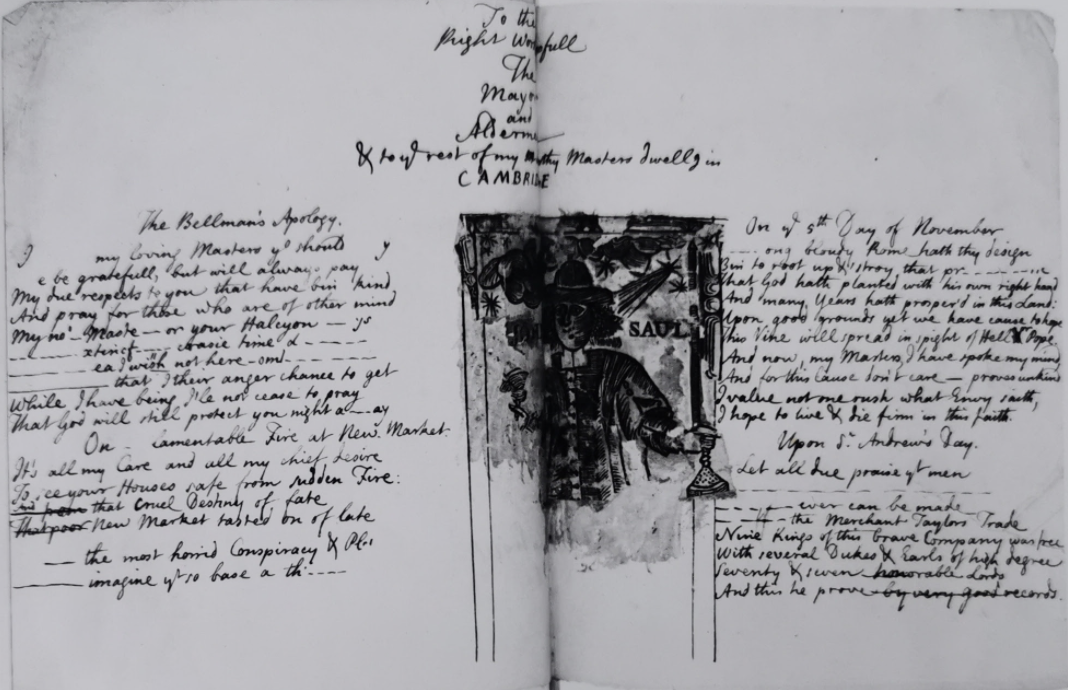 To the
Right Worpfull
The
Mayor
and
Alderme
& to yᵉ rest of my Masters dwellg in
CAMBRIGE
The Bellman's Apology.
my loving Masters yᵗ should y
e be gratefull, but will always pay
My due respects to you that have bin kind
And pray for those who are of other mind
My no - Maste - or your Halcyon - ys
xtinct - crasie time
wish not here
that I their anger chance to get
While I have being, I'le not cease to pray
That God will still protect you night a - ay
On lamentable Fire at New Market.
It's all my Care and all my chief desire
To see your Houses safe from sudden Fire:
And from that cruel Destiny of fate
That poor New Market tasted on of late
the most horrid Conspiracy & Plo
imagine yᵗ so base a th
SAUL
On yᵉ 5th Day of November
ong bloudy Rome hath thy design
Bin to root up & 'stroy that pr
that God hath planted with his own right hand
And many Years hath prosper'd in this Land:
Upon good grounds yet we have cause to hope
this Vine will spread in spight of Hell & Pope
And now, my Masters, I have spoke my mind
And for this Cause don't care - proves unkind
I value not one rush what Envy saith,
I hope to live & die firm in this faith.
Upon St. Andrew's Day.
Let all due praise yᵗ men
ever can be made
the Merchant Taylors Trade
Nine Kings of this brave Company was free
With several Dukes & Earls of high degree
Seventy & seven honorable Lords
And this he prove by very good records.